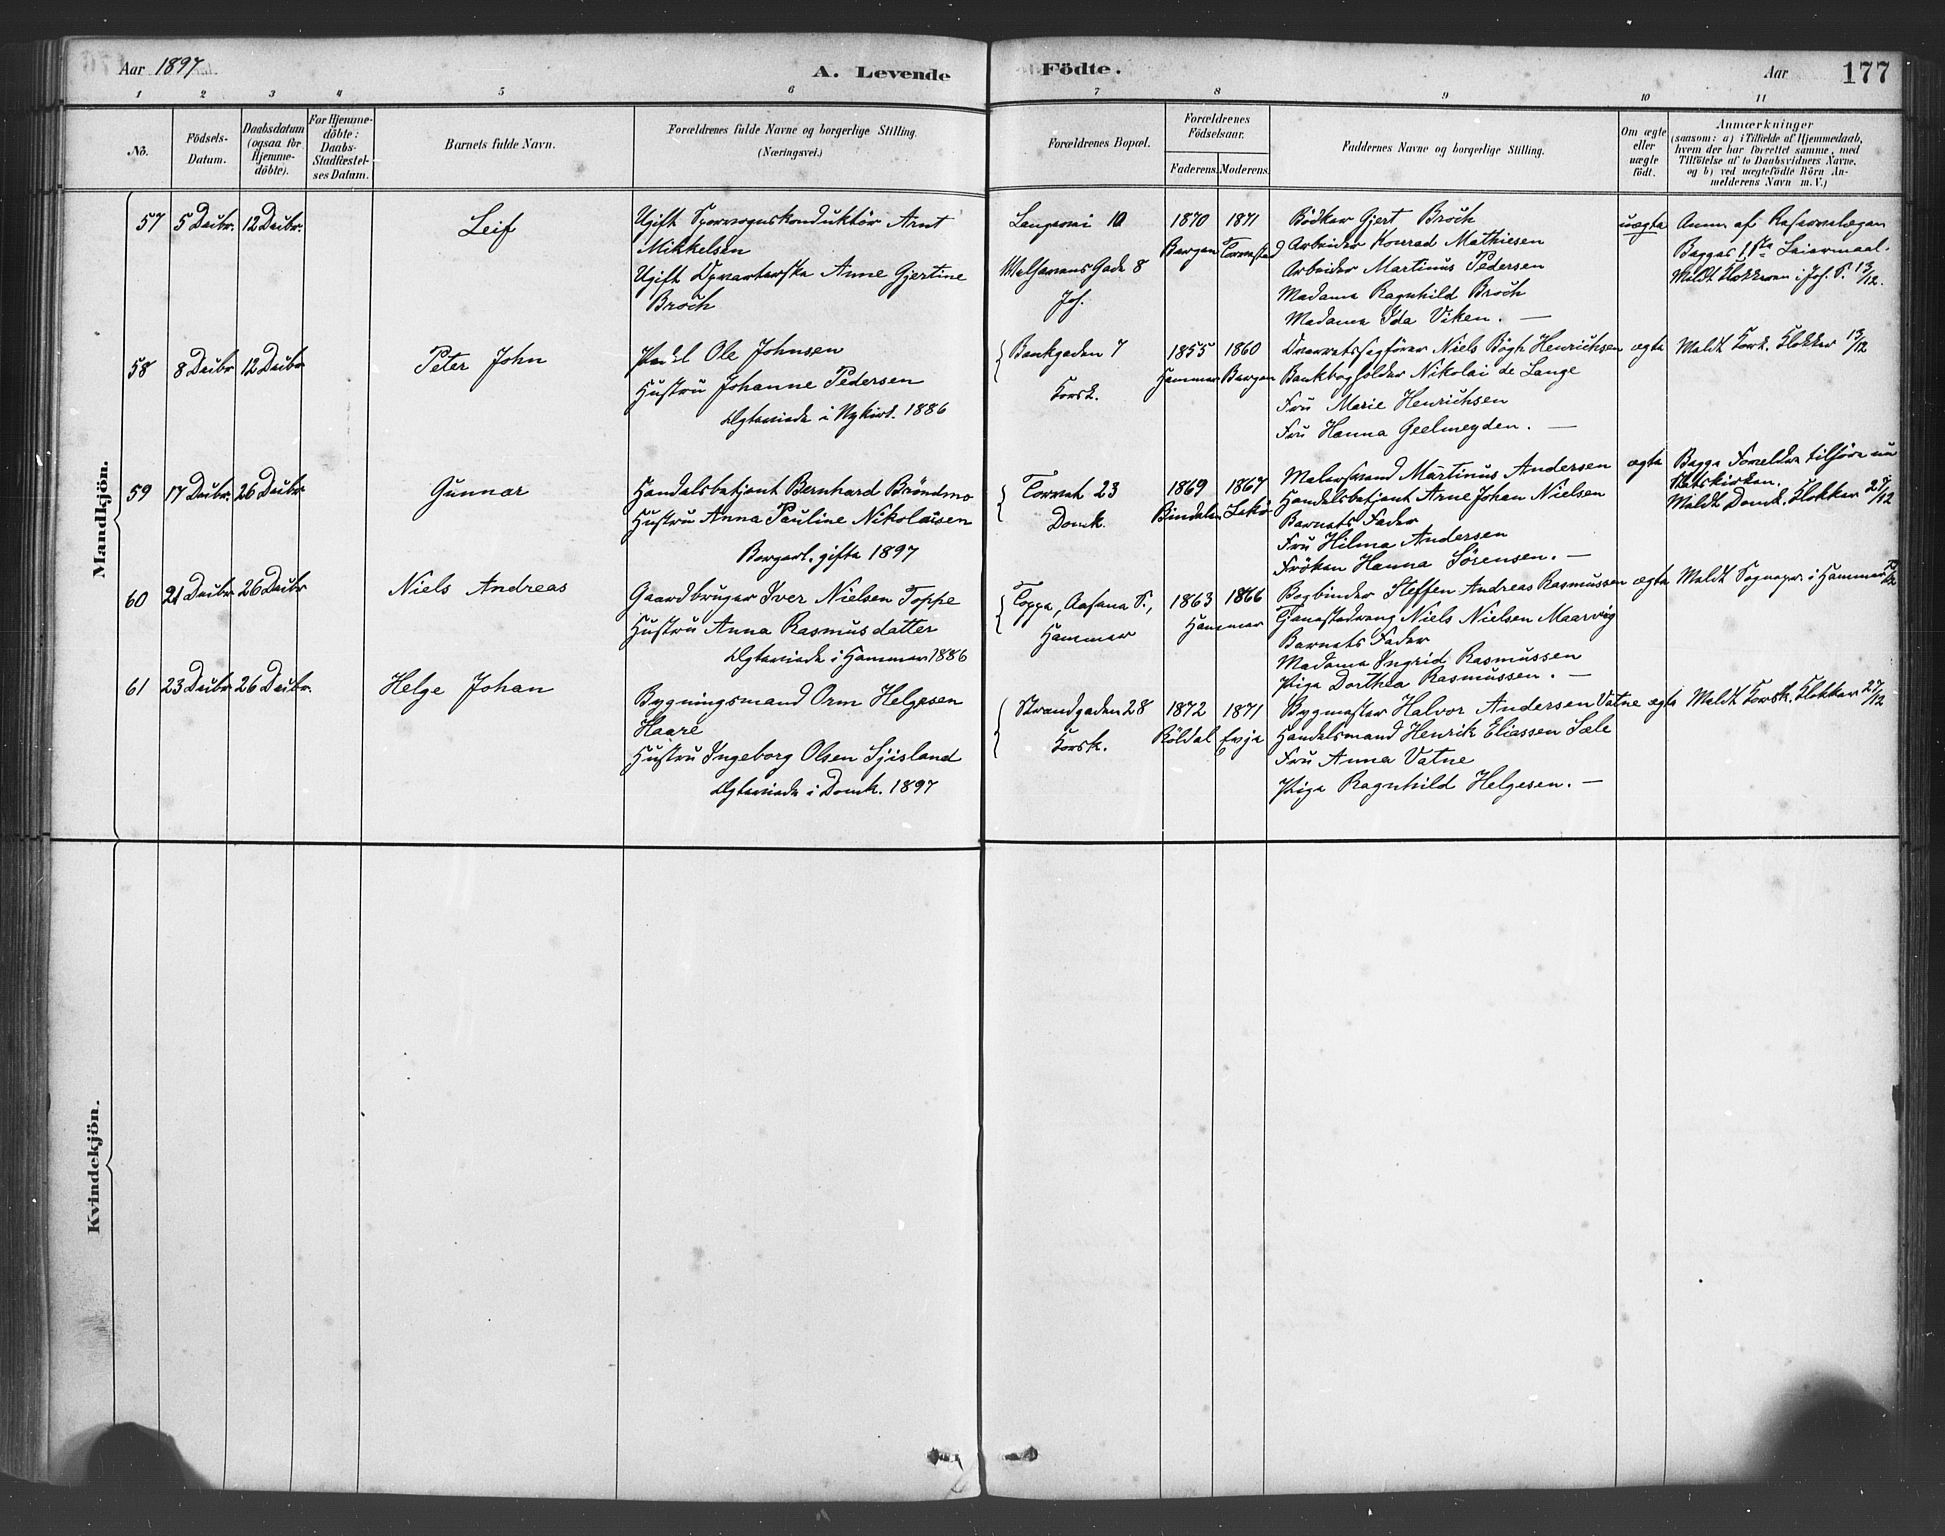 Aar 1897.
A. Levende Födte.
Aar
177
1 2 3 4 5 6 7 8 9 10 11
No.
Födsels-Datum.
Daabsdatum (ogsaa for Hjemme-döbte).
For Hjemme-döbte: Daabs-Stadfæstel-ses Datum.
Barnets fulde Navn.
Forældrenes fulde Navne og borgerlige Stilling.
(Næringsvei.)
Forældrenes Bopæl.
Forældrenes Födselsaar.
Faderens. Moderens.
Faddernes Navne og borgerlige Stilling.
Om ægte eller uægte födt.
Anmærkninger
(saasom: a) i Tilfælde af Hjemmedaab,
hvem der har forrettet samme, med
Tilföielse af to Daabsvidners Navne.
og b) ved uægtefödte Börn An-
melderens Navn m. V.)
Mandkjön.
57 5 Decbr. 12 Decbr.
Leif
Ugift Sporvognskonduktör Arnt
Mikkelsen
Ugift Anne Gjertine
Broch
10
Welhavens Gade 8
Joh.
1870 1871
Bergen Torvestad
Bödker Gjert Broch
Arbeider Konrad Mathiesen
Arbeider Martinus Pedersen
Madame Ragnhild Broch
Madame Ida Viken. —
uægte
Anm. af Reservelægen
Begges 1ste Leiermaal.
Meldt Klokkeren i Joh. S. 13/12.
58 8 Decbr 12 Decbr
Peter John
Ole Johnsen
Hustru Johanne Pedersen
Ægteviede i Nykirk. 1886
Bankgaden 7
Korsk.
1855 1860
Hammer Bergen
Overretssagförer Niels Bögh Henrichsen
Bankbogholder Nikolai de Lange
Fru Marie Henrichsen
Fru Hanna Geelmeyden. —
ægte
Meldt Kork. Klokker 13/12
59 17 Decbr. 26 Decbr
Gunnar
Handelsbetjent Bernhard Bröndmo
Hustru Anna Pauline Nikolaisen
Borgerl. gifte 1897
Torvet 23
Domk.
1869 1867
Bindalen Lekö
Malersvend Martinus Andersen
Handelsbetjent Arne Johan Nielsen
Barnets Fader
Fru Hilma Andersen
Fröken Hanna Sörensen. —
ægte
Begge Forældre tilhöre nu
Statskirken.
Meldt Domk. Klokker 27/12
60 21 Decbr 26 Decbr
Niels Andreas
Gaardbruger Iver Nielsen Toppe
Hustru Anna Rasmusdatter
Ægteviede i Hammer 1886
Toppe, Aasene S.,
Hammer
1863 1866
Hammer
Bogbinder Steffen Andreas Rasmussen
Tjenestedreng Niels Nielsen Maarvig
Barnets Fader
Madame Ingrid Rasmussen
Pige Dorthea Rasmussen. —
ægte
Meldt Sognepr. i Hammer
61 23 Decbr 26 Decbr.
Helge Johan
Bygningsmand Orm Helgesen
Haare
Hustru Ingeborg Olsen Sjisland
Ægteviede i Domk. 1897
Strandgaden 28
Korsk.
1872 1871
Röldal Evje
Bygmester Halvor Andersen Vatne
Handelsmand Henrik Eliassen Sæle
Fru Anna Vatne
Pige Ragnhild Helgesen. —
ægte
Meldt Korsk. Klokker 27/12
Kvindekjön.